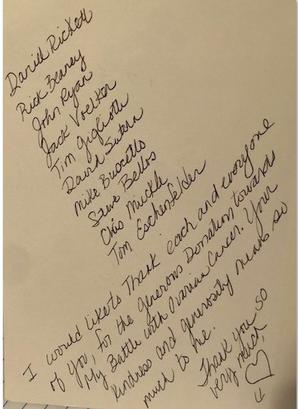 Daniel Rickett
Rick Beaney
John Ryan
Jack Voelker
Tim Gigliotti
David Sutera
Mike Buscetto
Steve Belles
Chis Muckle
Tom Eschenfelder
I would like to Thank each and everyone
of you, for the generous Donation towards
My Battle with Ovarian Cancer. Your
kindness and generosity means so
much to me.
Thank you so
very much,